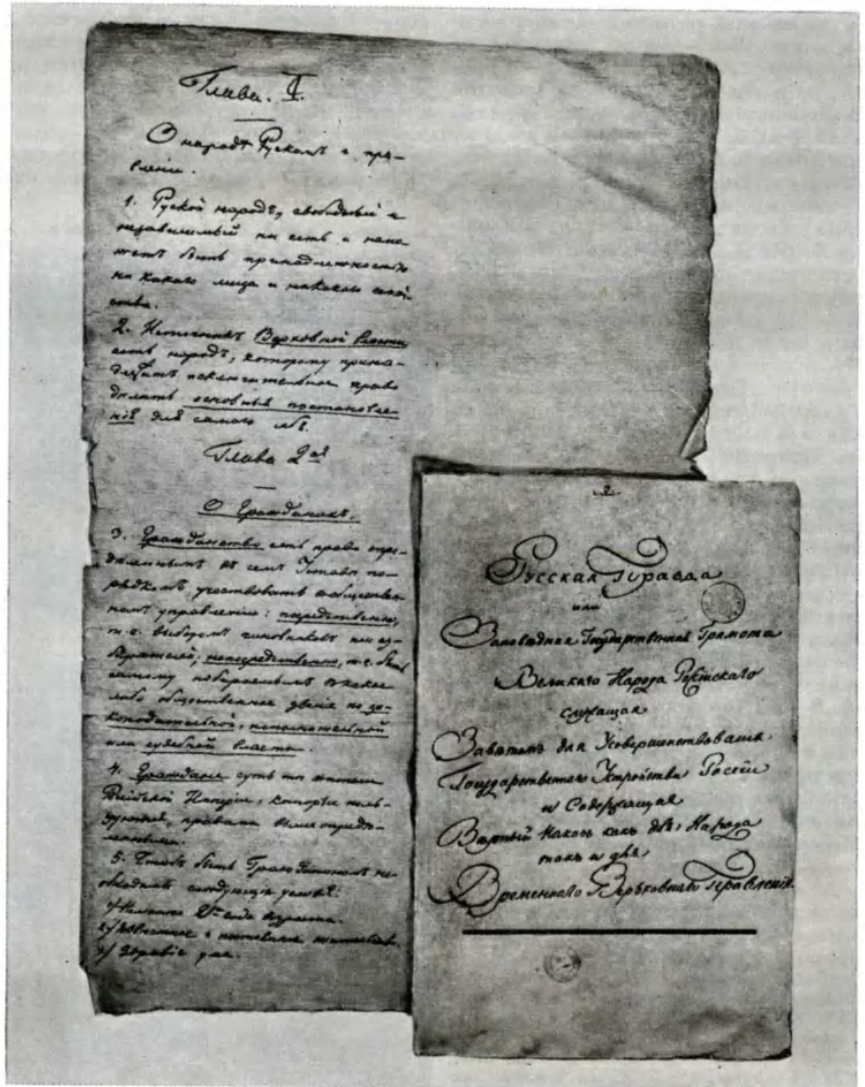 Глава. I.
О народѣ Рускомъ и пра-
вленіи.
1. Руской народъ, свободный и
независимый не есть и не мо-
жетъ быть принадлежностью
ни какого лица и никакого семей-
ства.
2. Источникъ Верховной Власти
есть народъ, которому принад-
лежитъ исключительное право
дѣлать основныя постановле-
нія для самого себя.
Глава 2ая
О Гражданахъ.
3. Гражданство есть право опре-
дѣленнымъ въ семъ Уставѣ по-
рядкомъ участвовать въ обществен-
номъ управленіи: посредственно,
т. е. выборомъ чиновниковъ или из-
бирателей; непосредственно, т. е. быть
самому избираемымъ въ какое
либо общественное званіе по за-
конодательной, исполнительной
или судебной власти.
4. Граждане суть тѣ жители
Россійской Имперіи, которые поль-
зуются правами выше опредѣ-
ленными.
5. Чтобъ быть Гражданиномъ не-
обходимы слѣдующія условія:
1) Не менѣе 21го года возраста.
2) Извѣстное и постоянное жительство.
3) Здравіе ума.
Русская Правда
или
Заповѣдная Государственная Грамота
Великаго Народа Россійскаго
служащая
Завѣтомъ для Усовершенствованія
Государственнаго Устройства Россіи
и Содержащая
Вѣрный Наказъ какъ для Народа
такъ и для
Временнаго Верьховнаго Правленія.